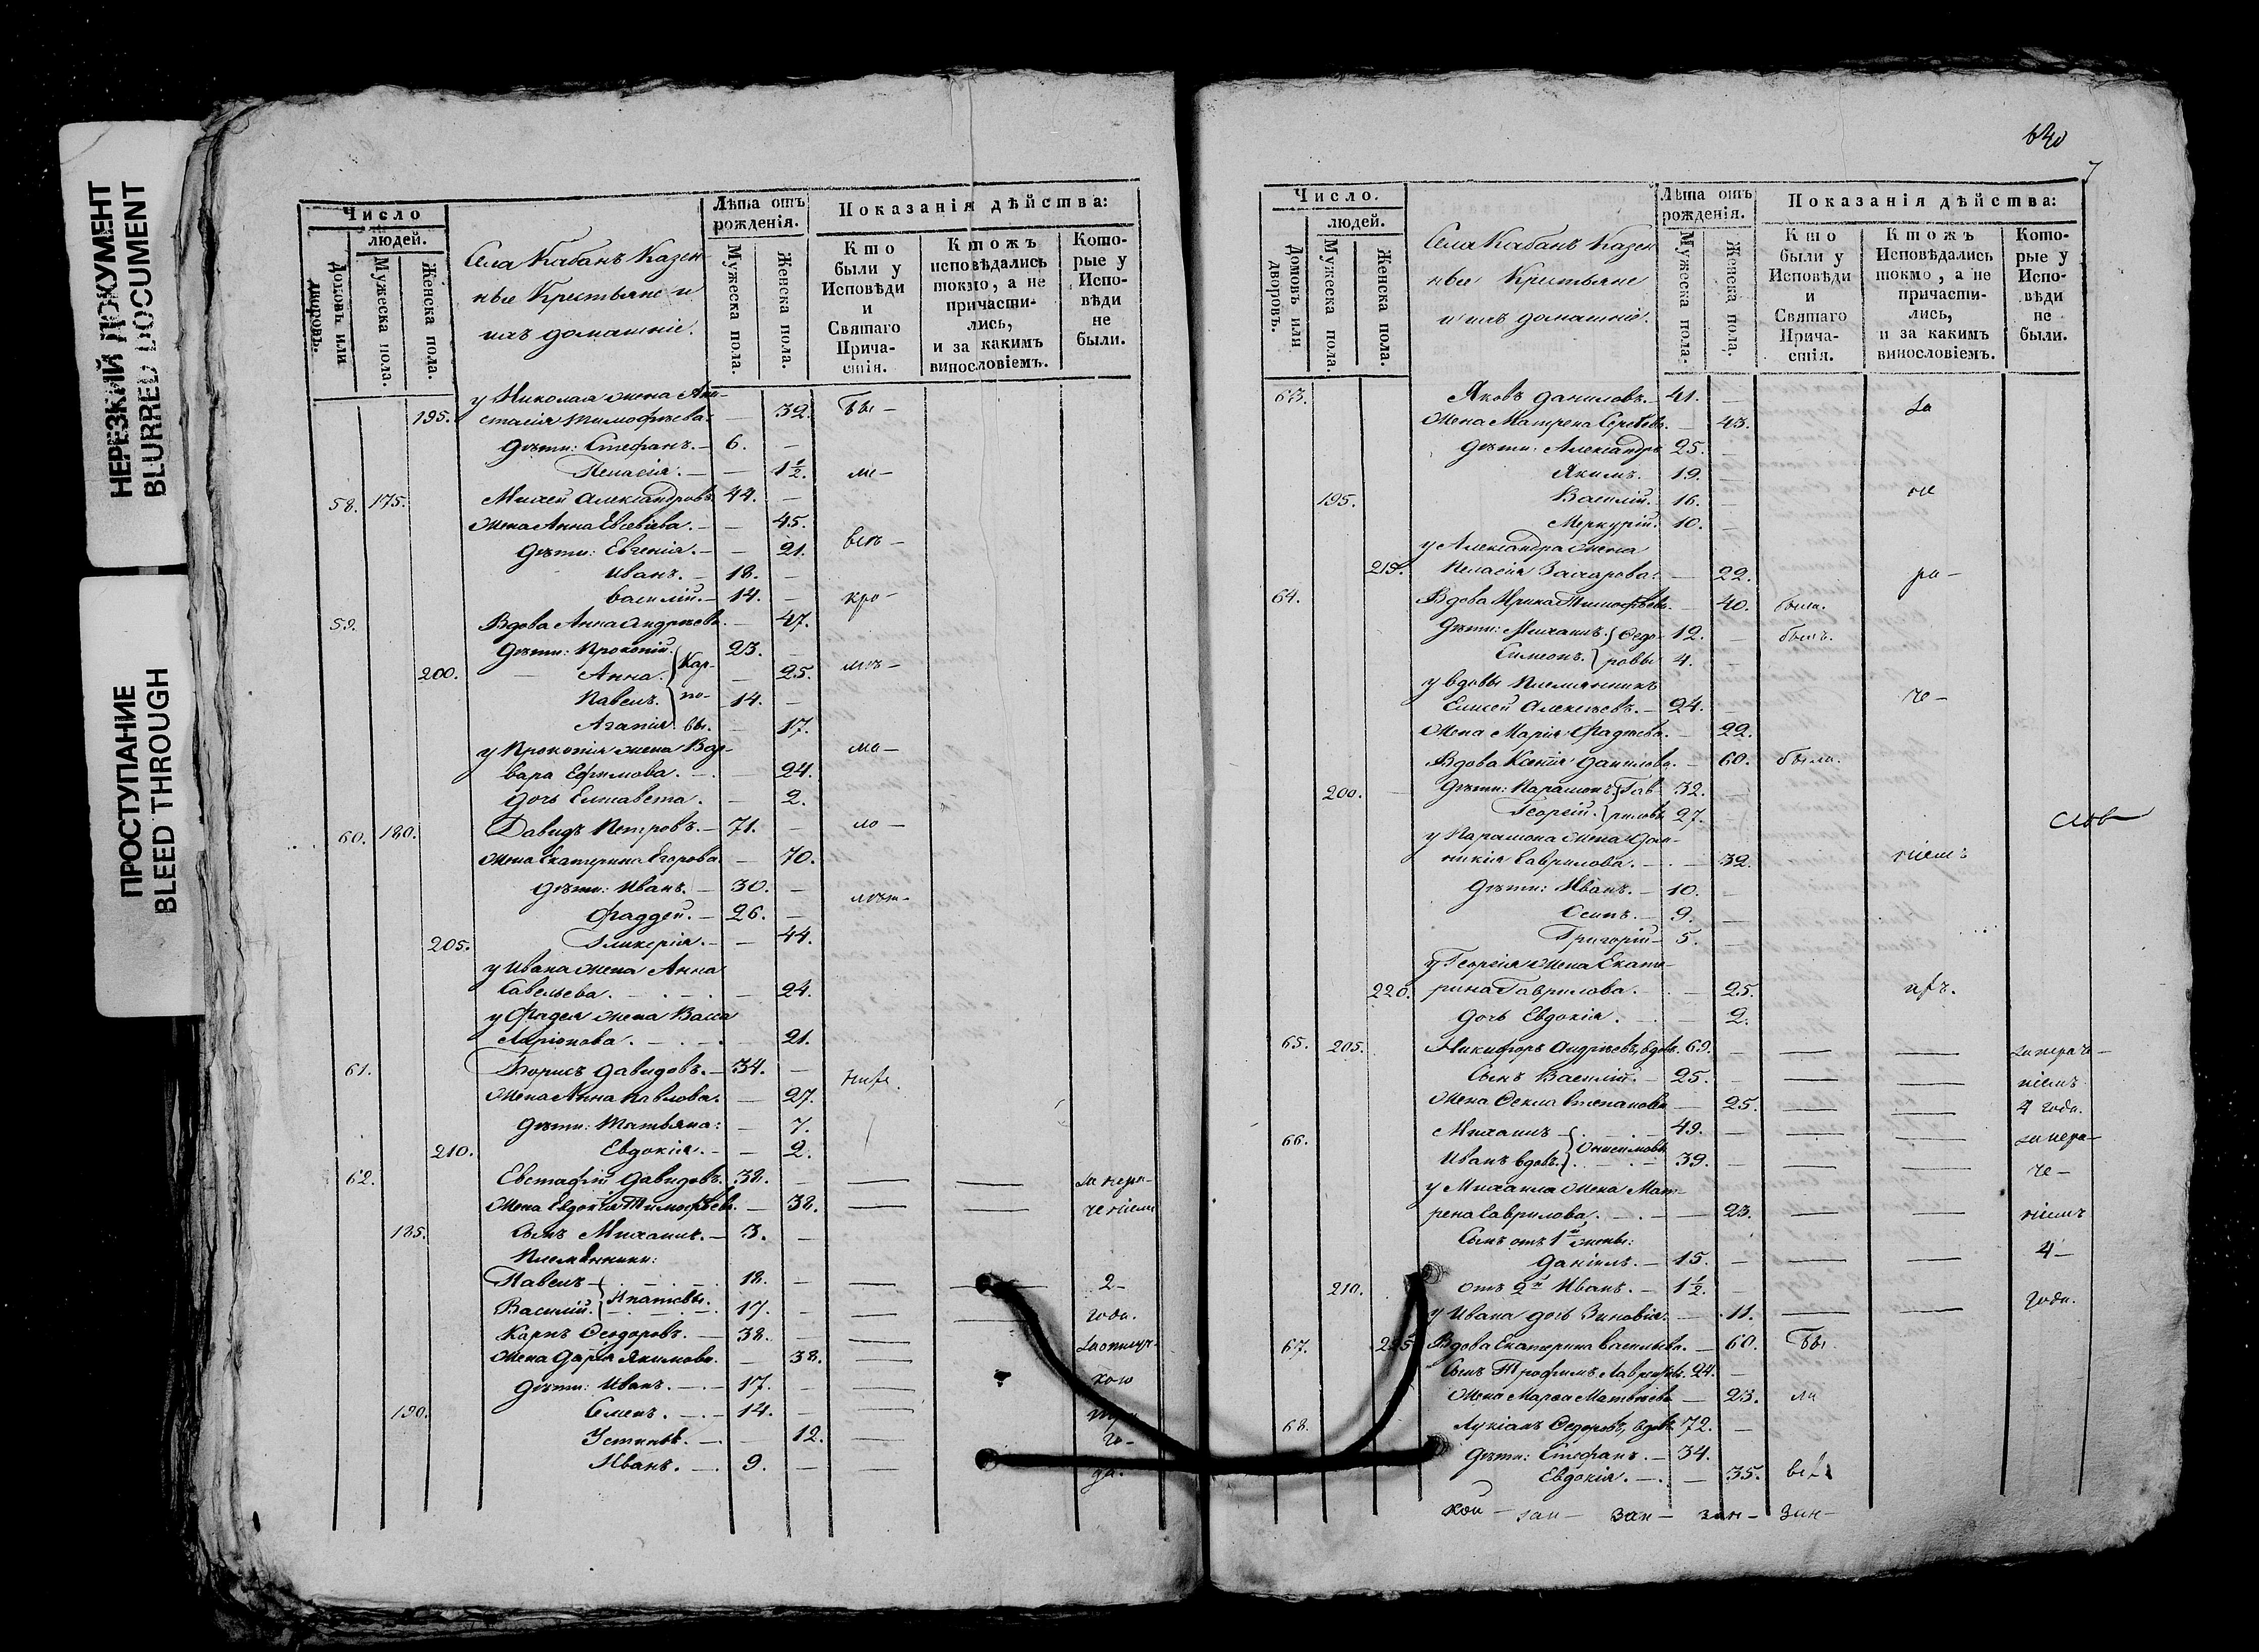 НЕРЕЗКИЙ ДОКУМЕНТ
BLURRED DOCUMENT
ПРОСТУПАНИЕ
BLEED THROUGH
Число
людей.
Домовъ или дворовъ.
Мужеска пола.
Женска пола.
Села Кабанъ Казен-
ные Крестьяне и
ихъ домашніе.
Лѣта отъ рожденія.
Мужеска пола.
Женска пола.
Показанія дѣйства:
Кто были у Исповѣди и Святаго Причастія.
Ктожъ исповѣдались токмо, а не причастились, и за какимъ винословіемъ.
Которые у Исповѣди не были.
у Николая жена Ана-
195. стасія Тимофѣева. — 32. Бы-
дѣти: Стефанъ. — 6. —
Пелагія. — — 1½. ли-
58. 175. Михей Александровъ. 44. —
жена Анна Евсевіева. — 45.
дѣти: Евгенія. — — 21. всѣ-
Иванъ. — 18. —
Василій. — 14. — кро-
59. Вдова Анна Андреева. — 47.
дѣти: Прокопій. 23. —
200. Анна. Кар- — 25. мѣ-
Павелъ. по- 14. —
Агапія. вы. — 17.
у Прокопія жена Вар- ма-
вара Ефимова. — — 24.
дочь Елисавета. — 2.
60. 180. Давидъ Петровъ. — 71. — ло-
жена Екатерина Егорова. — 70.
дѣти: Иванъ. — 30. —
Фаддей. — 26. — лѣт-
205. Гликерія. — — 44.
у Ивана жена Анна
Савельева. — 24.
у Фадея жена Васса
Ларіонова. — 21.
61. Борисъ Давидовъ. — 34. —
жена Анна Павлова. — 27.
дѣти: Татьяна: — 7.
210. Евдокія. — — 2.
62. Евстафій Давидовъ. 38. — — — за нера-
жена Евдокія Тимофѣева. — 38. — — ченіем
185. сынъ Михаилъ. — 3. —
Племянники:
Павелъ 18. — — — 2-
Василій. Ипатовы. 17. — — — года.
Карпъ Ѳеодоровъ. — 38. — — за отлуч-
жена Дарія Якимова. — 38. —
дѣти: Иванъ. — 17. — — кою
190. Семенъ. — 14. — — три
Устинья. — — 12. — го-
Иванъ. — 9. — да.
640
Число.
людей.
Домовъ или дворовъ.
Мужеска пола.
Женска пола.
Села Кабанъ Казен-
ные Крестьяне
и ихъ домашніе.
Лѣта отъ рожденія.
Мужеска пола.
Женска пола.
Показанія дѣйства:
Кто были у Исповѣди и Святаго Причастія.
Ктожъ Исповѣдались токмо, а не причастились, и за какимъ винословіемъ.
Которые у Исповѣди не были.
63. Яковъ Даниловъ. — 41. — За
жена Матрена Сергѣева. — 43.
дѣти: Александръ 25. —
Якимъ. 19. —
195. Василій. 16. — не
Меркурій. 10. —
у Александра жена
215. Пелагія Захарова. — 22. ра-
64. Вдова Ирина Тимофѣева. — 40. была.
дѣти: Михаилъ. Ѳедо- 12. — былъ.
Симеонъ. ровы 4. —
у вдовы племянникъ
Елисей Алексѣевъ. — 24. — че-
жена Марія Фадѣева. — 22.
Вдова Ксенія Данилова. — 60. была.
200. дѣти: Парамонъ. Гав- 32. —
Георгій. риловы 27. —
у Парамона жена Дом-
никія Гаврилова. — 32. ніемъ
дѣти: Иванъ. — 10. —
Осипъ. — 9. —
Григорій — 5. —
у Георгія жена Екате-
220. рина Гаврилова. — 25.
дочь Евдокія. — 2.
65. 205. Никифоръ Андрѣевъ, вдовъ. 69. — — — за нераче-
Сынъ Василій. — 25. — — — ніемъ
жена Ѳекла Степанова — 25. — — 4 года.
66. Михаилъ 49. — — — за нера-
Иванъ вдовъ. Онисимовы 39. — — — че-
у Михаила жена Мат-
рена Гаврилова. — 23. — — ніемъ
Сынъ отъ 1й жены:
Даніилъ. — 15. — — — 4-
210. отъ 2й Иванъ. — 1½. —
у Ивана дочь Зиновія. — 11. — — года.
67. 225 Вдова Екатерина Васильева. — 60. Бы
Сынъ Трофимъ Лаврентьевъ. 24. —
жена Марѳа Матвѣева — 23. ли
68. Лукіанъ Ѳедоровъ, вдовъ 72. —
дѣти: Стефанъ. — 34.
Евдокія. — — 35. всѣ